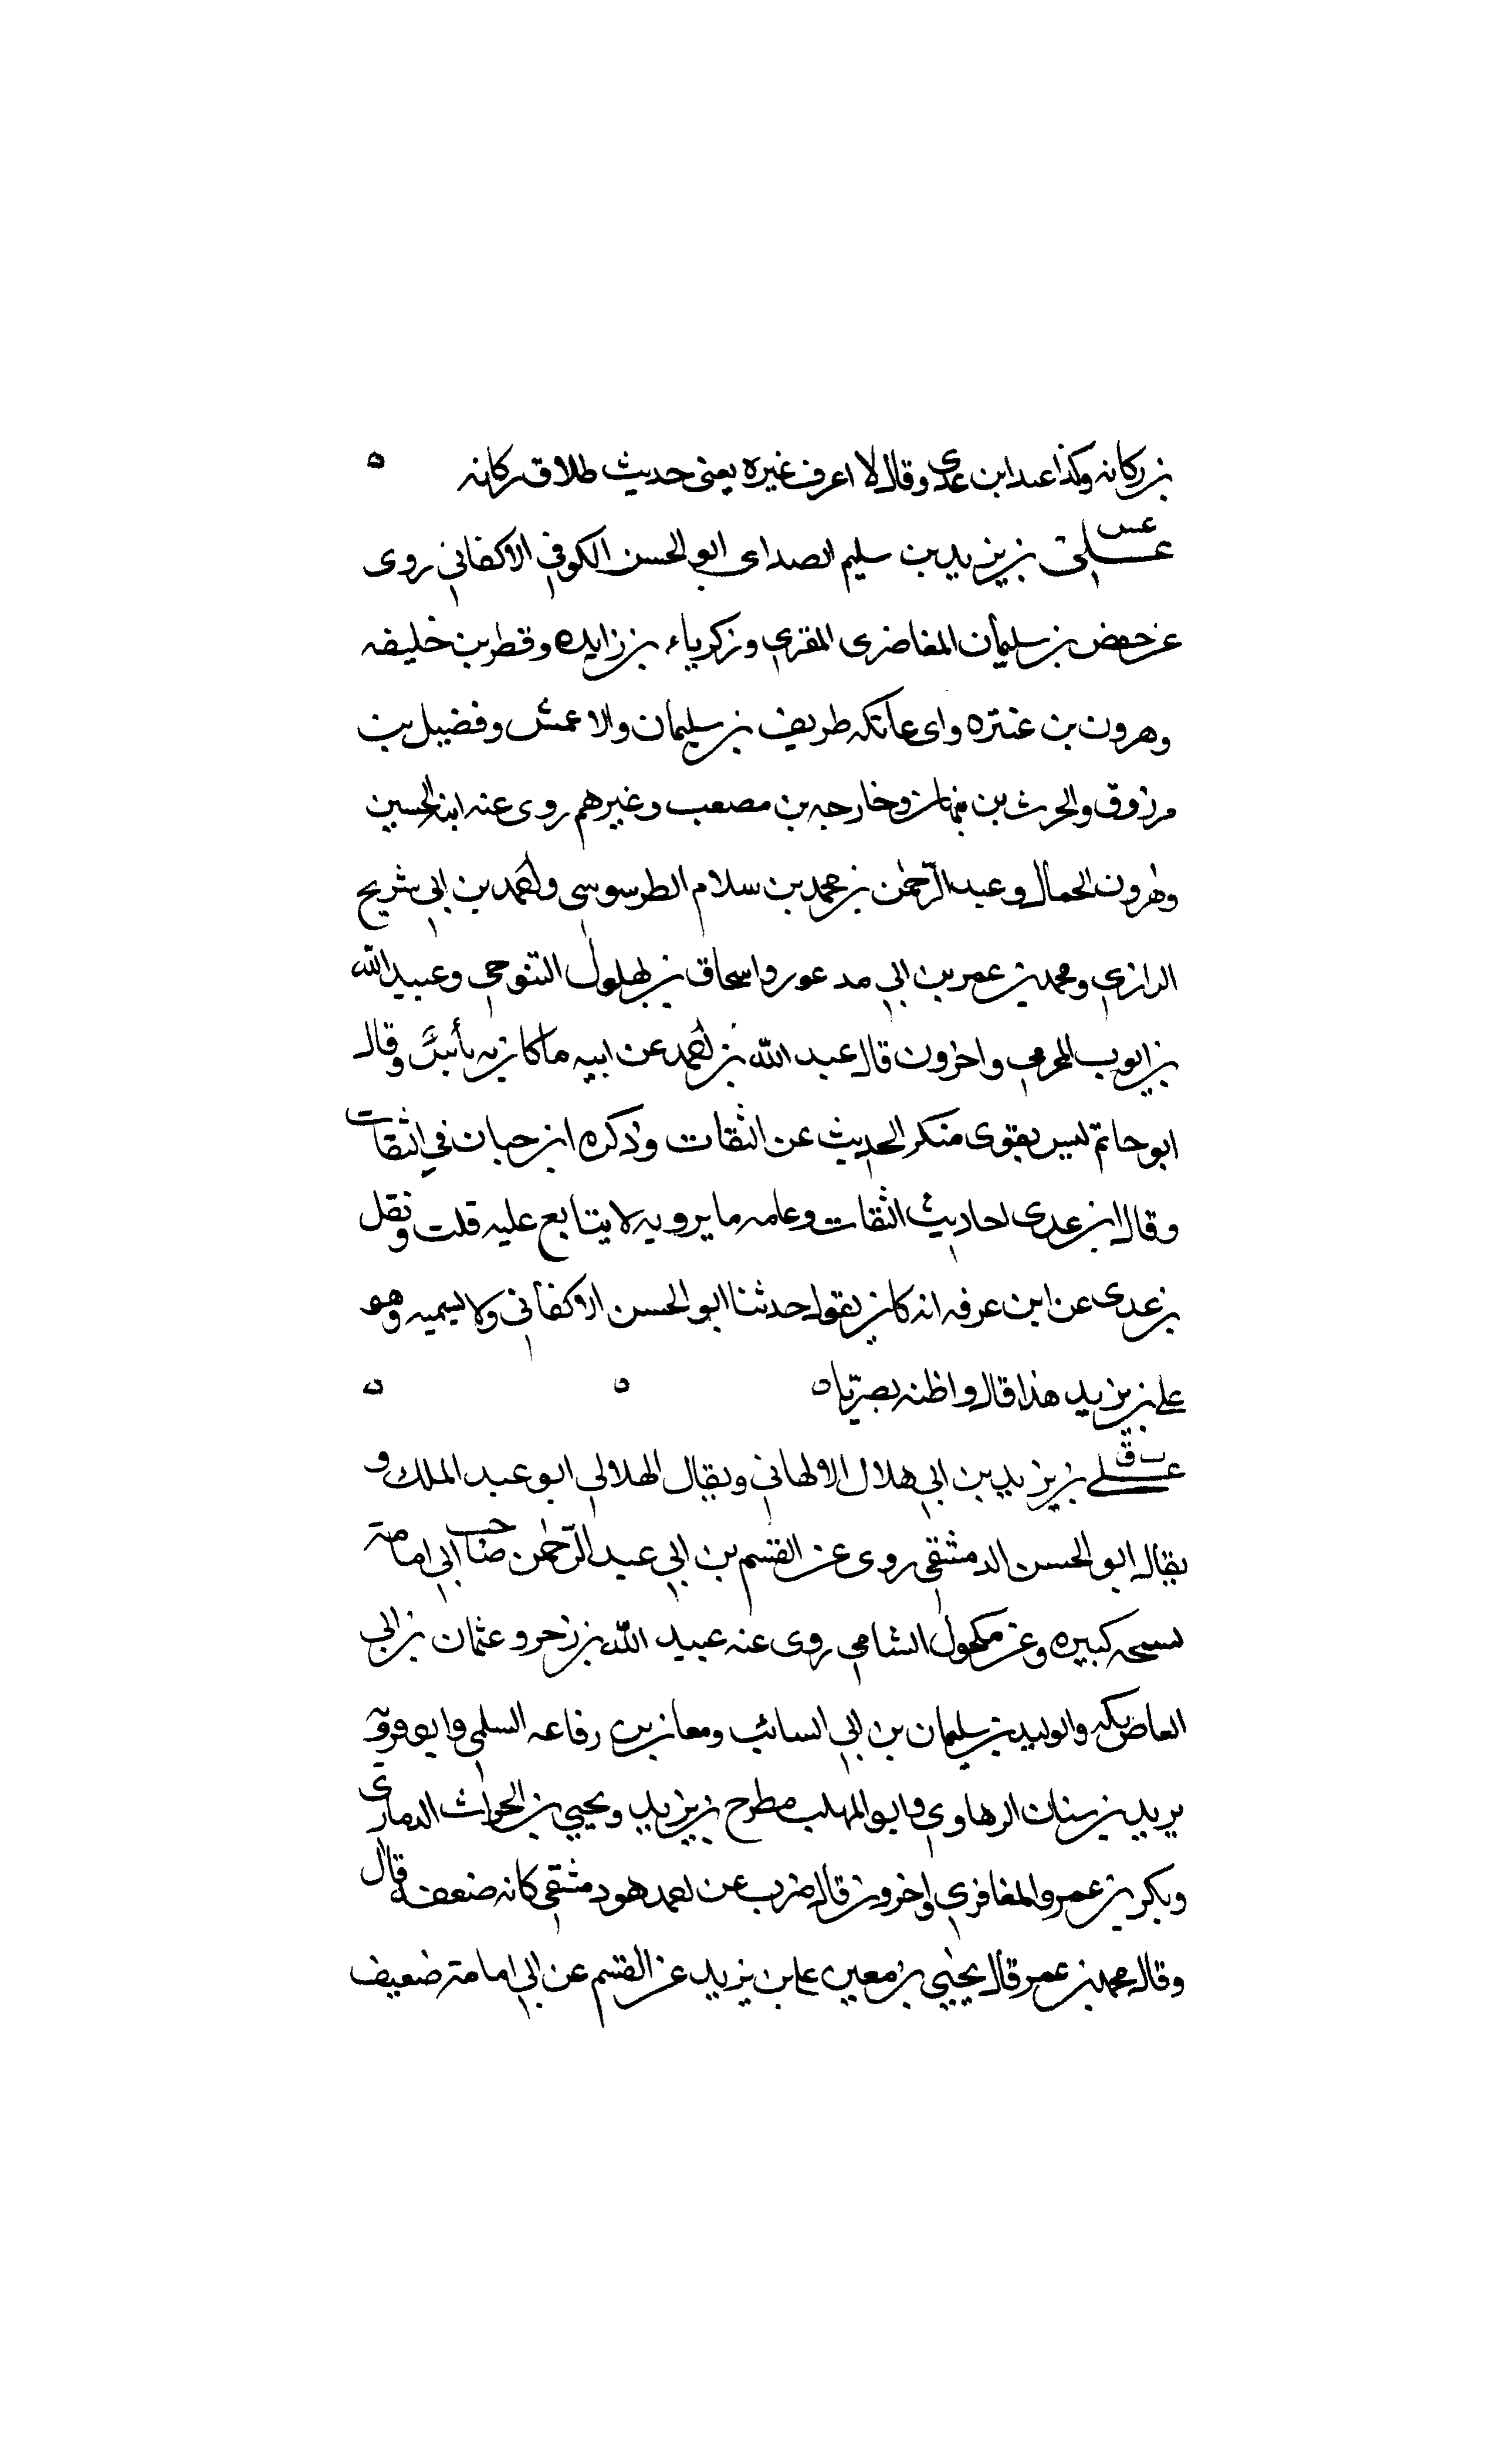 بن ركانه وكذا عند ابن عدى وقال لا اعرف غيره يعنى حديث طلاق ركانه ه
عس
علي بن يزيد بن سليم الصداى ابو الحسن الكوفي الاكفاني روى
عن حفص بن سليمان الغاضرى المقري وزكرياء بن زايده وقطر بن خليفه
وهرون بن عنتره وابى عاتكه طريف بن سليمان والاعمش وفضيل بن
مرزوق والحرث بن نبهان وخارجه بن مصعب وغيرهم روى عنه ابنه الحسين
وهرون الحمال وعبد الرحمن بن محمد بن سلام الطرسوسى واحمد بن ابي شريح
الرازي ومحمد بن عمر بن ابي مدعور واسحاق بن بهلول التنوحي وعبيد الله
بن ايوب المخرمي واخرون قال عبد الله بن احمد عن ابيه ما كان به بأس وقال
ابو حاتم ليس بقوى منكر الحديث عن الثقات وذكره ابن حبان في الثقات
وقال ابن عدى احاديث الثقات وعامه ما يرويه لا يتابع عليه قلت ونقل
بن عدى عن ابن عرفه انه كان يقول حدثنا ابو الحسن الاكفاني ولا يسميه وهو
علي بن يزيد هذا قال واظنه بصريا ه ه ه
ت ق
علي بن يزيد بن ابي هلال الالهاني ويقال الهلالي ابو عبد الملك و
يقال ابو الحسن الدمشقي روى عن القسم بن ابي عبد الرحمن صاحب ابي امامة
نسخه كبيره وعن مكحول الشامي روى عنه عبيد الله بن زحر وعثمان بن ابي
العاتكه والوليد بن سليمان بن ابي السائب ومعان بن رفاعه السلمي وابو فروة
يزيد بن سنان الرهاوي وابو المهلب مطرح بن يزيد ويحيي بن الحراث الدمارى
وبكر بن عمرو المغافري واخرون قال حرب عن احمد هو دمشقي كانه ضعفه قال
وقال محمد بن عمر قال يحيي بن معين علي بن يزيد عن القسم عن ابي امامة ضعيف